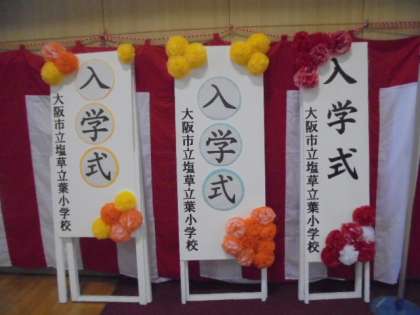 入学式
大阪市立塩草立葉小学校
入学式
大阪市立塩草立葉小学校
入学式
大阪市立塩草立葉小学校